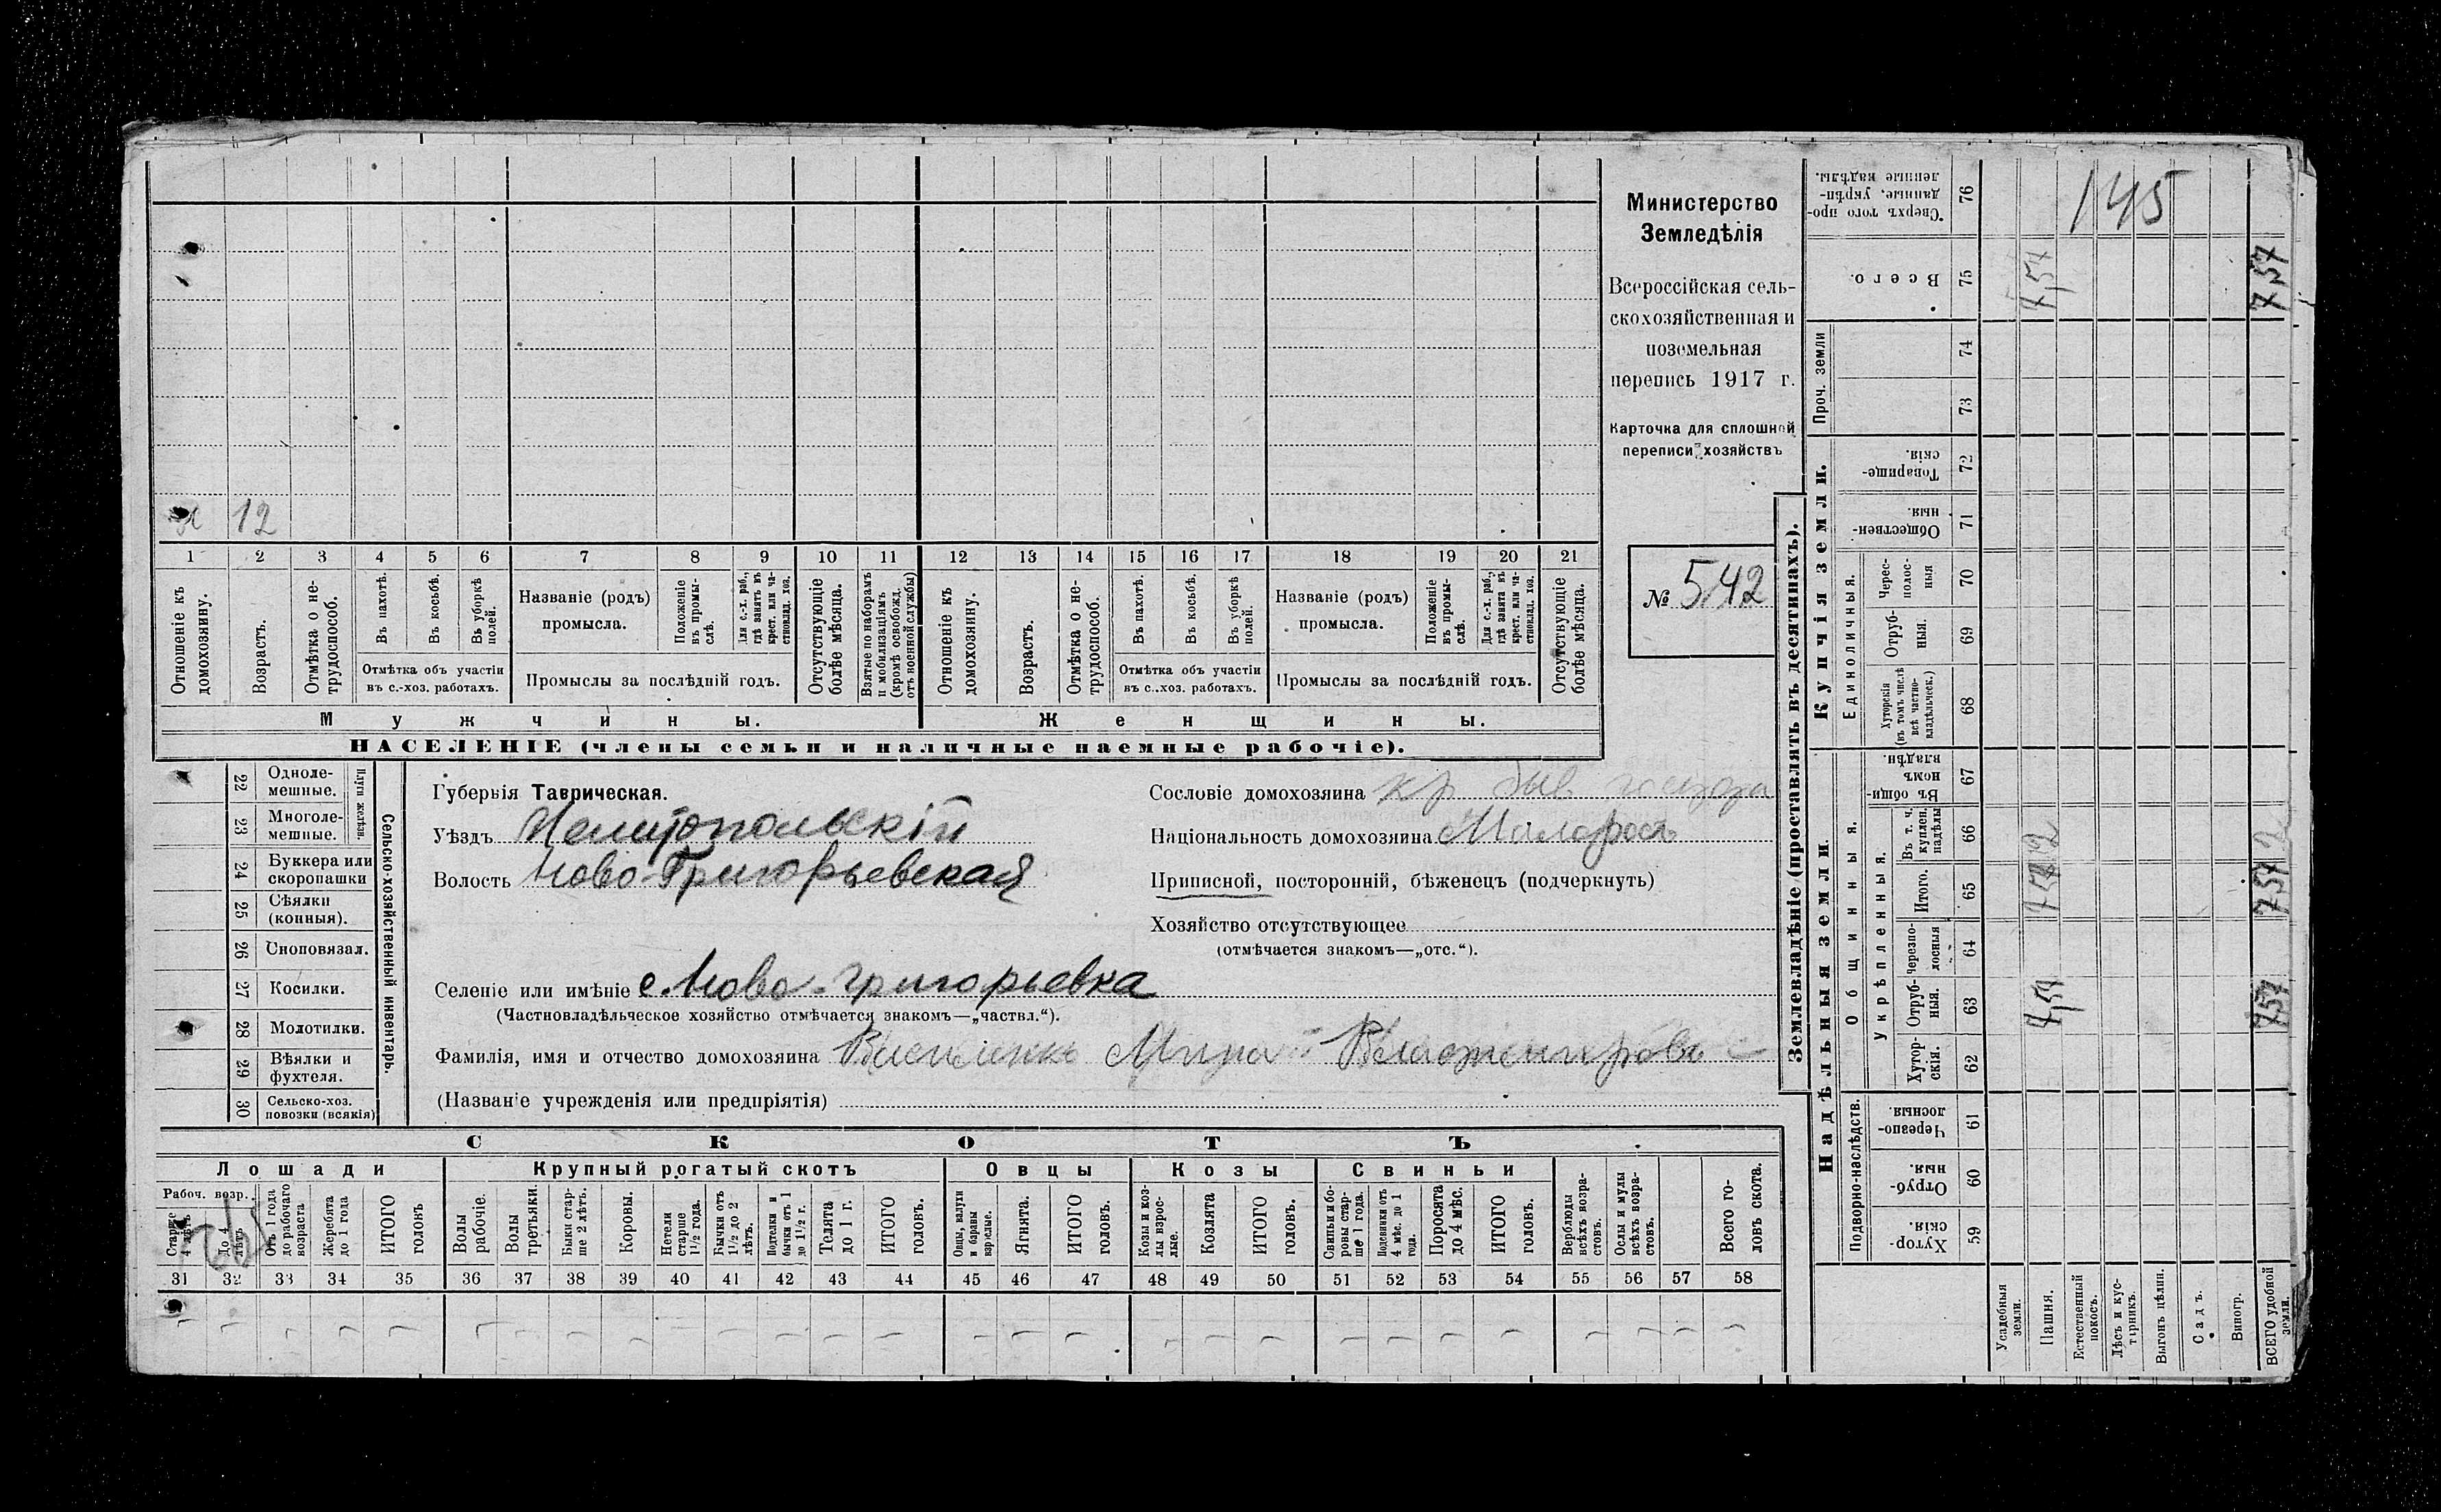 12
1 2 3 4 5 6 7 8 9 10 11 12 13 14 15 16 17 18 19 20 21
Отношеніе къ домохозяину.
Возрастъ.
Отмѣтка о не-
трудоспособ.
Въ пахотѣ.
Въ косьбѣ.
Въ уборкѣ полей.
Отмѣтка объ участіи
въ с.-хоз. работахъ.
Названіе (родъ)
промысла.
Положеніе въ промы-
слѣ.
Для с.-х. раб., гдѣ занятъ въ крест. или ча-
стновлад. хоз.
Промыслы за послѣдній годъ.
Отсутствующіе болѣе мѣсяца.
Взятые по наборамъ и мобилизаціямъ (кромѣ освобожд. отъ военной службы)
Отношеніе къ домохозяину.
Возрастъ.
Отмѣтка о не-
трудоспособ.
Въ пахотѣ.
Въ косьбѣ.
Въ уборкѣ полей.
Отмѣтка объ участіи
въ с..хоз. работахъ.
Названіе (родъ)
промысла.
Положеніе въ промы-
слѣ.
Для с.-х. раб., гдѣ занята въ крест. или ча-
стновлад. хоз.
Промыслы за послѣдній годъ.
Отсутствующіе болѣе мѣсяца.
Мужчины.
Женщины.
НАСЕЛЕНІЕ (члены семьи и наличные наемные рабочіе).
Министерство
Земледѣлія
Всероссійская сель-
скохозяйственная и
поземельная
перепись 1917 г.
Карточка для сплошной
переписи хозяйствъ
№ 542
22 Одноле-
мешные.
23 Многоле-
мешные.
Плуги желѣзн.
24 Буккера или
скоропашки
25 Сѣялки
(конныя).
26 Сноповязал.
27 Косилки.
28 Молотилки.
29 Вѣялки и
фухтеля.
30 Сельско-хоз.
повозки (всякія)
Сельско-хозяйственный инвентарь.
Губернія Таврическая.
Уѣздъ Мелитопольскій
Волость Ново-Григорьевская
Селеніе или имѣніе с. Ново-Григорьевка
(Частновладѣльческое хозяйство отмѣчается знакомъ—„частвл.“).
Фамилія, имя и отчество домохозяина
(Названіе учрежденія или предпріятія)
Сословіе домохозяина кр быв
Національность домохозяина Малоросъ
Приписной, посторонній, бѣженецъ (подчеркнуть)
Хозяйство отсутствующее
(отмѣчается знакомъ—„отс.“).
СКОТЪ
Лошади
Крупный рогатый скотъ
Овцы
Козы
Свиньи
Рабоч. возр.
Старше 4 лѣтъ
До 4 лѣтъ
Отъ 1 года до рабочаго возраста
Жеребята до 1 года
ИТОГО головъ
Волы рабочіе.
Волы третьяки.
Быки стар-
ше 2 лѣтъ.
Коровы.
Нетели старше 1½ года.
Бычки отъ 1½ до 2 лѣтъ.
Подтелки и бычки отъ 1 до 1½ г.
Телята до 1 г.
ИТОГО головъ.
Овцы, валухи и бараны взрослые.
Ягнята.
ИТОГО головъ.
Козы и коз-
лы взрос-
лые.
Козлята
ИТОГО головъ.
Свиньи бо-
ровы стар-
ше 1 года.
Подсвинки отъ 4 мѣс. до 1 года.
Поросята до 4 мѣс.
ИТОГО головъ.
Верблюды всѣхъ возра-
стовъ.
Ослы и мулы всѣхъ возра-
стовъ.
Всего го-
ловъ скота.
31 32 33 34 35 36 37 38 39 40 41 42 43 44 45 46 47 48 49 50 51 52 53 54 55 56 57 58
Землевладѣніе (проставлять въ десятинахъ).
Надѣльныя земли.
Купчія земли.
Проч. земли
Подворно-наслѣдств.
Общинныя.
Укрѣпленныя.
Единоличныя.
Хутор-
скія. 59
Отруб-
ныя. 60
Черезпо-
лосныя. 61
Хутор-
скія. 62
Отруб-
ныя. 63
Черезпо-
лосныя 64
Итого. 65
Въ т. ч. куплен. надѣлы 66
Въ общин-
номъ владѣн. 67
Хуторскія (въ томъ числѣ всѣ частно-
владѣльческ.) 68
Отруб-
ныя. 69
Черес-
полос-
ныя 70
Обществен-
ныя. 71
Товарище-
скія. 72
73
74
Всего. 75
Сверхъ того про-
данные, укрѣп-
ленные надѣлы. 76
Усадебныя земли.
Пашня.
7,57
7,57
Естественный покосъ.
Лѣсъ и кус-
тарникъ.
Выгонъ цѣлин.
Садъ.
Виногр.
ВСЕГО удобной земли.
757
757
7,57
145